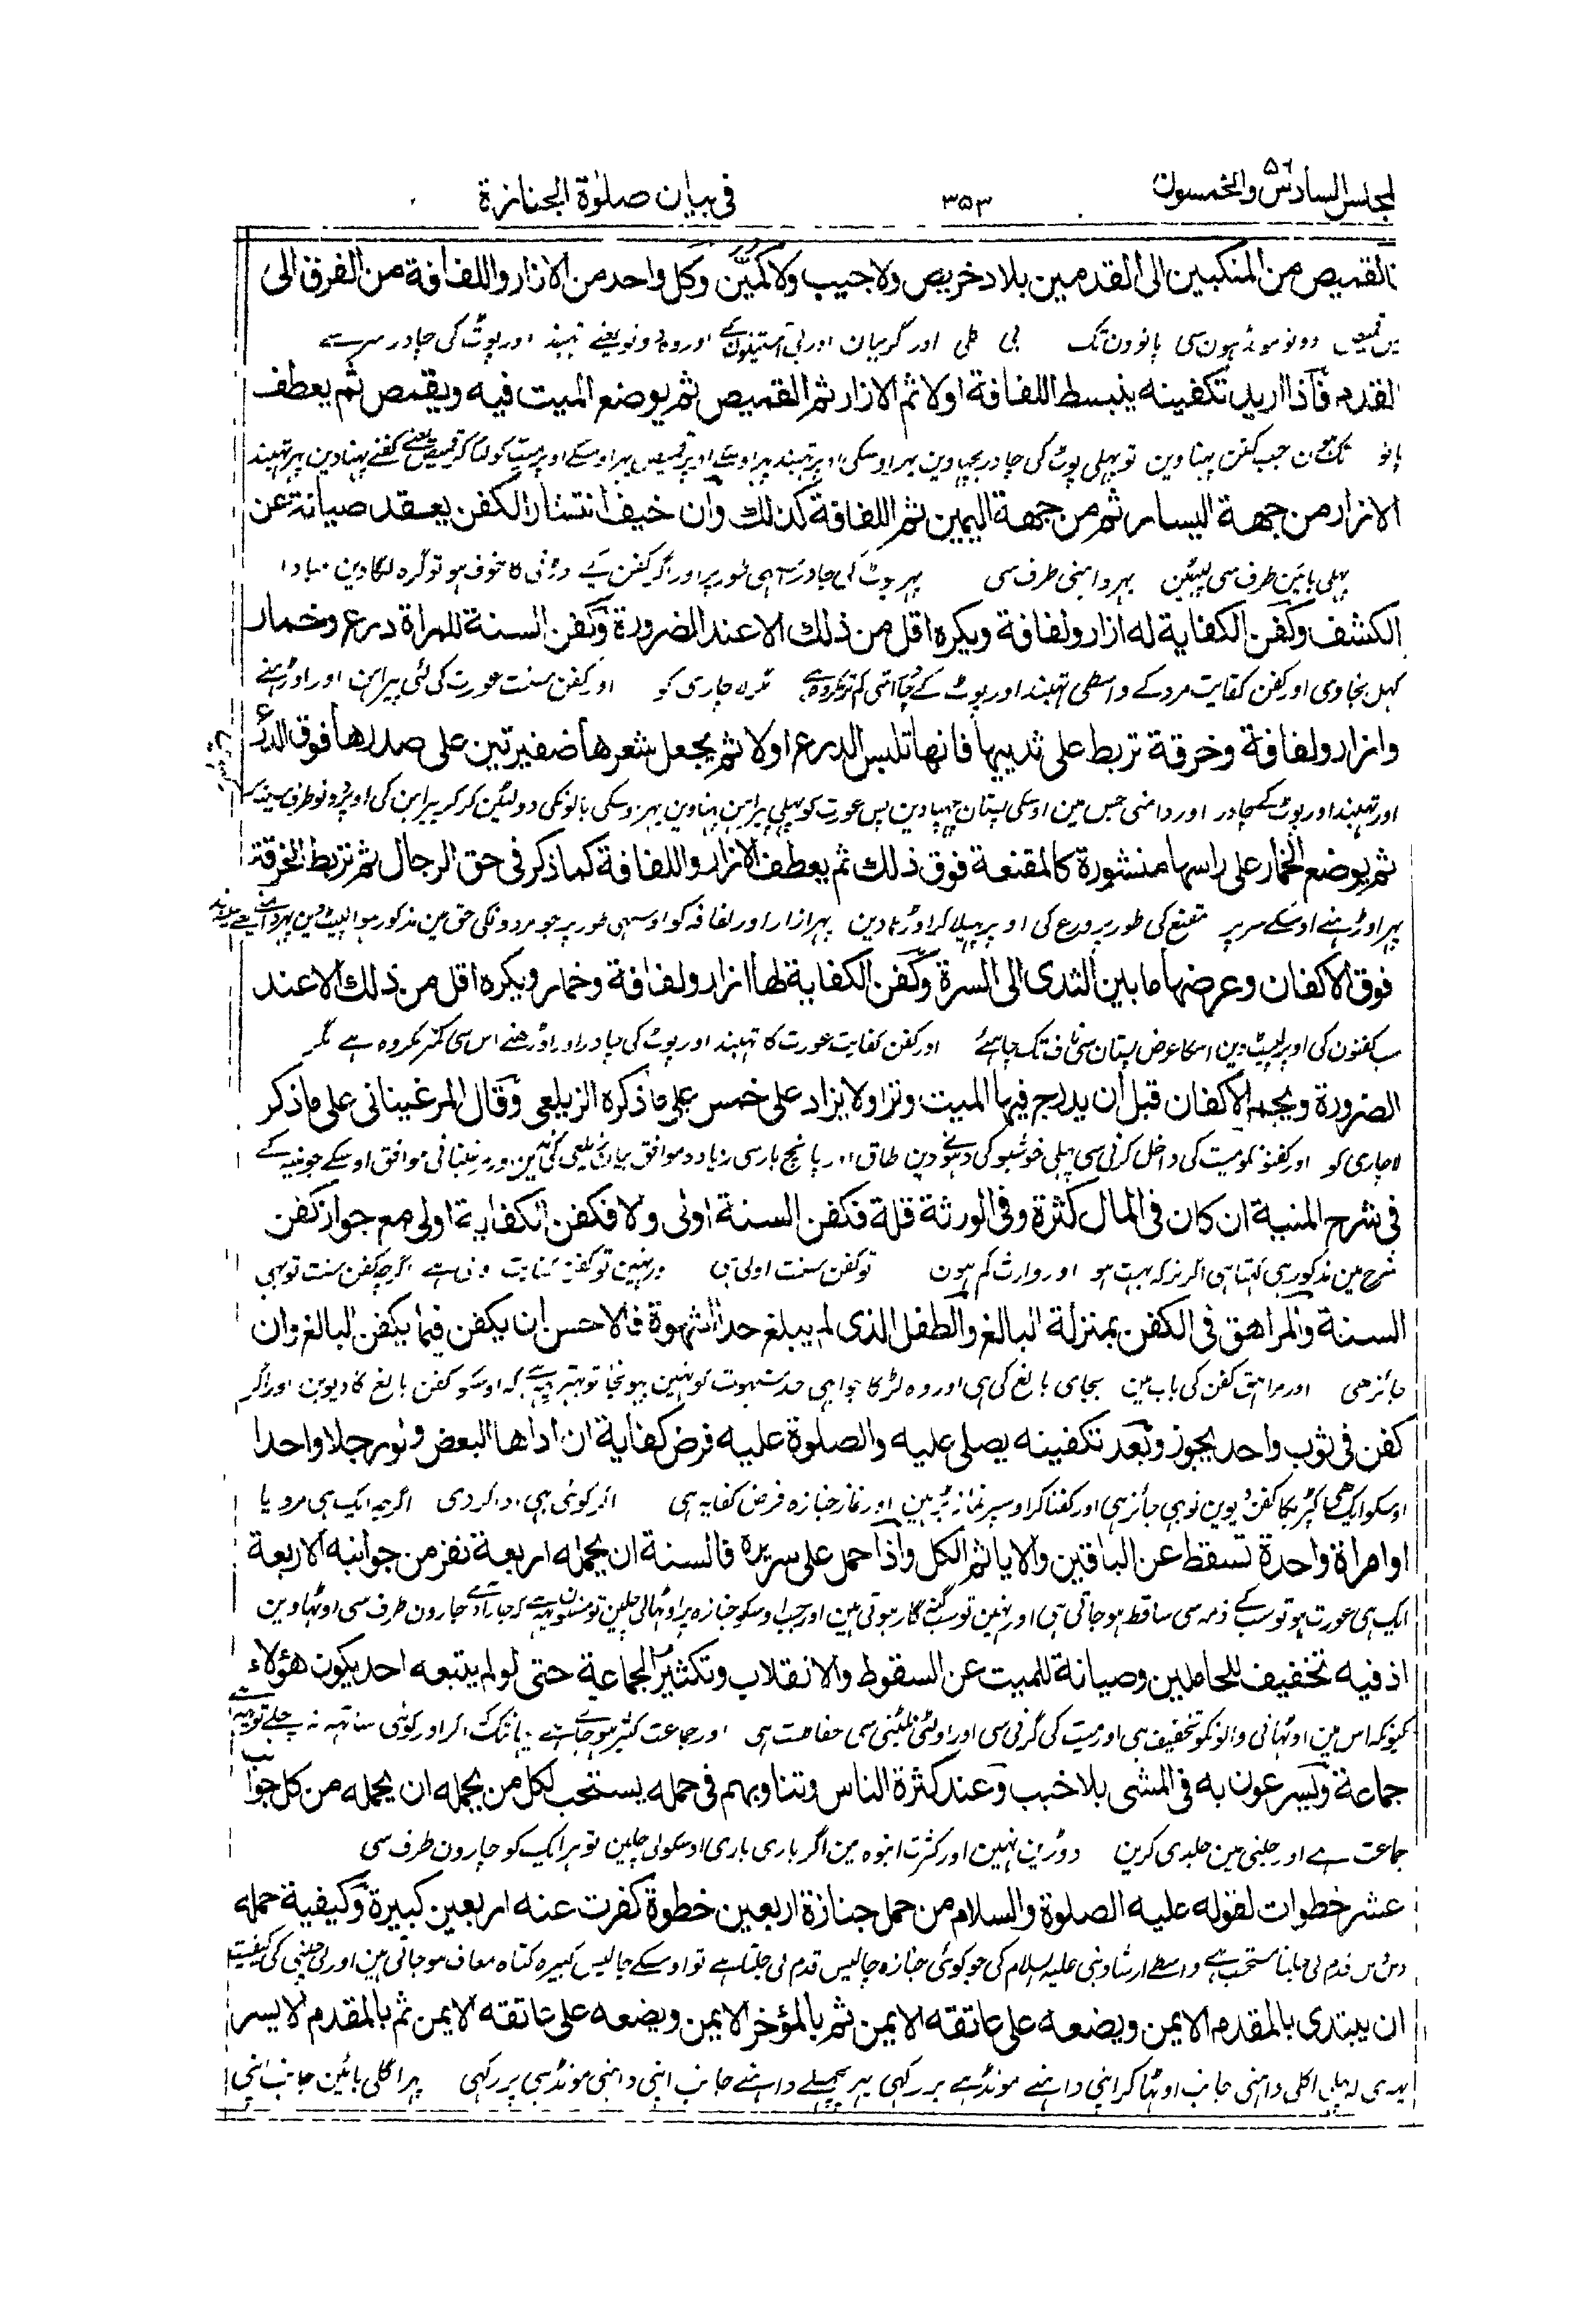 المجلس السادس والخمسون ۵٦
۳۵۳
فى بيان صلوة الجنازة
فالقميص من المنكبين الى القدمين بلا دخريص ولا جيب ولا كمين وكل واحد من الازار واللفافة من الفرق الى
پس قمیص دونو مونڈہون سی پانوون تک بی کلی اور گریبان اور بی آستینون کے اور وہ دونو یعنے تہبند اور پوٹ کی چادر سر سے
القدم فاذا اريد تكفينه ينبسط اللفافة اولا ثم الازار ثم القميص ثم يوضع الميت فيه ويقمص ثم يعطف
پانو تک جب کفن پہناوین تو پہلی پوٹ کی چادر بچہاوین پہر اوسکی اوپر تہبند پہر اوسکے اوپر قمیص پہر اوسکے اوپر میت کو لٹاکر قمیص یعنے کفنے پہنادین پہر تہبند
الازار من جهة اليسار ثم من جهة اليمين ثم اللفافة كذلك وان خيف انتشار الكفن يعقد صيانة عن
پہلی بائین طرف سی لپیٹین پہر داہنی طرف سی پہر پوٹ کی چادر اسی طور پر اور اگر کفن کے خوف ہو تو گرہ لگادین مبادا
الكشف وكفن الكفاية له ازار ولفافة ويكره اقل من ذلك الا عند الضرورة وكفن السنة للمراة درع وخمار
کہل نجاوی اور کفن کفایت مرد کے واسطی تہبند اور پوٹ کے چادر اتنی کم تو مکروہ ہے مگر لاچاری کو اور کفن سنت عورت کی لئی پیراہن اور اوڑہنے
وازار ولفافة وخرقة تربط على ثدييها فانها تلبس الدرع اولا ثم يجعل شعرها ضفيرتين على صدرها فوق الدرع
اور تہبند اور پوٹ کے چادر اور دامنی جس مین اوسکی پستان چہپادین پس عورت کو پہلی پیراہن پہناوین پہر اوسکی بالونکی دو لٹین کر کر پیراہن کی اوپر دونو طرف سینہ کے
ثم يوضع الخمار على راسها منشورة كالمقنعة فوق ذلك ثم يعطف الازار واللفافة كما ذكر فى حق الرجال ثم تربط الخرقة
پہر اوڑہنے اوسکے سر پر مقنع کی طور پر درع کی اوپر پہیلا کر اوڑہادین پہر ازار اور لفافہ کو اوسی طور پر جو مردونکی حق مین مذکور ہوا لپیٹ دین پہر
فوق الاكفان وعرضها ما بين الثدى الى السرة وكفن الكفاية لها ازار ولفافة وخمار ويكره اقل من ذلك الا عند
سب کفنون کی اوپر لپیٹ دین اسکا عرض پستان سی ناف تک چاہئے اور کفن کفایت عورت کا تہبند اور پوٹ کی چادر اور اوڑہنے اس سی کمتر مکروہ ہے مگر
الضرورة ويجمر الاكفان قبل ان يدرج فيها الميت وترا ولا يزاد على خمس على ما ذكره الزيلعى وقال المرغينانى على ما ذكر
لاچاری کو اور کفنونکو میت کی داخل کرنی سی پہلی خوشبو کی دہونے دین طاق اور پانچ بار سی زیادہ موافق بیان زیلعی کی نہین اور مرغینانی موافق اوسکے جو منیہ کے
فى شرح المنية ان كان فى المال كثرة وفى الورثة قلة فكفن السنة اولى ولا فكفن الكفاية اولى مع جواز كفن
شرح مین مذکور ہی کہتا ہی اگر ترکہ بہت ہو اور وارث کم ہون تو کفن سنت اولی ہی ورنہین تو کفن کفایت اولی ہے اگرچہ کفن سنت تو بہی
السنة والمراهق فى الكفن بمنزلة البالغ والطفل الذى لم يبلغ حد الشهوة فالاحسن ان يكفن فيما يكفن البالغ وان
جائز ہی اور مراہق کفن کی باب مین بجای بالغ کی ہی اور وہ لڑکا جو ابہی حد شہوت کو نہین پہونچا تو بہتر یہ ہے کہ اوسکو کفن بالغ کا دیوین اور اگر
كفن فى ثوب واحد يجوز وبعد تكفينه يصلى عليه والصلوة عليه فرض كفاية ان اداها البعض ولو رجلا واحدا
اوسکو ایک ہی کپڑیکا کفن دیوین تو بہی جائز ہی اور کفناکر اوسپر نماز پڑہین اور نماز جنازہ فرض کفایہ ہی اگر کوئی بہی ادا کردی اگرچہ ایک ہی مرد یا
او امراة واحدة تسقط عن الباقين والا ياثم الكل واذا حمل على سريره فالسنة ان يحمله اربعة نفر من جوانبه الاربعة
ایک ہی عورت ہو تو سب کے ذمہ سی ساقط ہو جاتی ہی اور نہین تو سب گنہگار ہوتی ہین اور جب اوسکو جنازہ پر اوٹہالی چلین تو مسنون یہہ ہے کہ چار آدمی چارون طرف سی اوٹہاوین
اذ فيه تخفيف للحاملين وصيانة للميت عن السقوط والانقلاب وتكثير الجماعة حتى لو لم يتبعه احد يكون هؤلاء
کیونکہ اس مین اوٹہانی والونکو تخفیف ہی اور میت کی گرنی سی اور اولٹی پلٹنی سی حفاظت ہی اور جماعت کثیر ہو جاتے ہے یہانتک اگر اور کوئی ساتہہ نہ چلے تو یہہ ہے
جماعة ويسرعون به فى المشى بلا خبب وعند كثرة الناس وتناوبهم فى حمله يستحب لكل من يحمله ان يحمله من كل جوانب
جماعت ہے اور چلنی مین جلدی کرین دوڑین نہین اور کثرت انبوہ مین اگر باری باری اوسکو لی چلین تو ہر ایک کو چارون طرف سی
عشر خطوات لقوله عليه الصلوة والسلام من حمل جنازة اربعين خطوة كفرت عنه اربعين كبيرة وكيفية حمله
دس دس قدم لی چلنا مستحب ہے واسطے ارشاد نبی علیہ السلام کی جو کوئی جنازہ چالیس قدم لی چلتا ہے تو اوسکے چالیس کبیرہ گناہ معاف ہو جاتی ہین اور لی چلنی کی کیفیت
ان يبتدى بالمقدم الايمن ويضعه على عاتقه الايمن ثم بالمؤخر الايمن ويضعه على عاتقه الايمن ثم بالمقدم الايسر
یہہ ہی کہ پہلی اگلی داہنی جانب اوٹہا کر اپنی داہنے مونڈہے پر رکہی پہر پچہلے داہنے جانب اپنی داہنی مونڈہی پر رکہی پہر اگلی بائین جانب اپنی